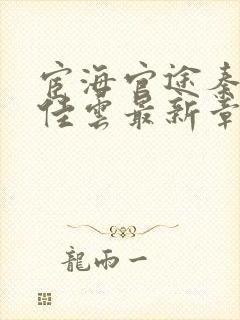 宦海官途秦
佳雲最新章
龍雨一